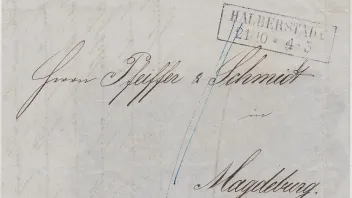 HALBERSTADT
21 10 * 4-5
Herrn Pfeiffer & Schmidt
in
Magdeburg.